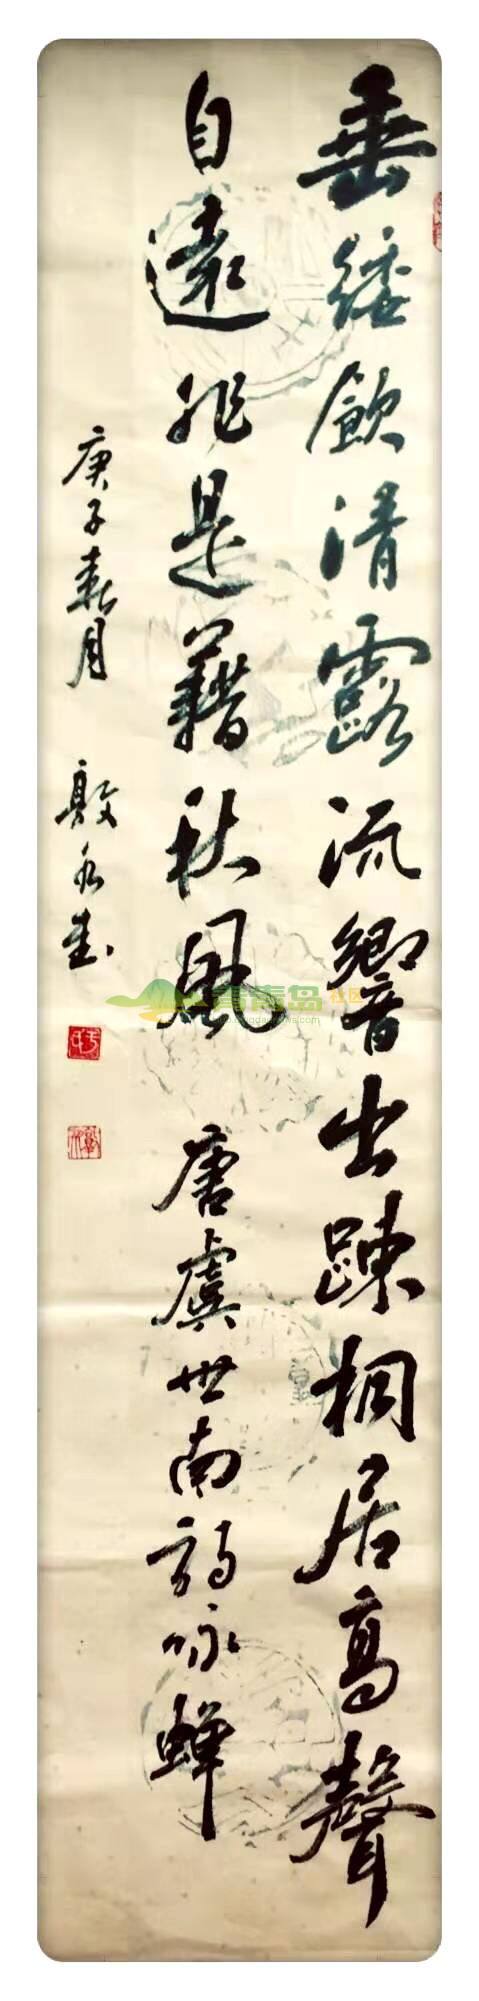 垂緌飲清露流響出疎桐居高聲
自遠非是藉秋風 唐虞世南詩咏蟬
庚子春月 殷
青青岛社区